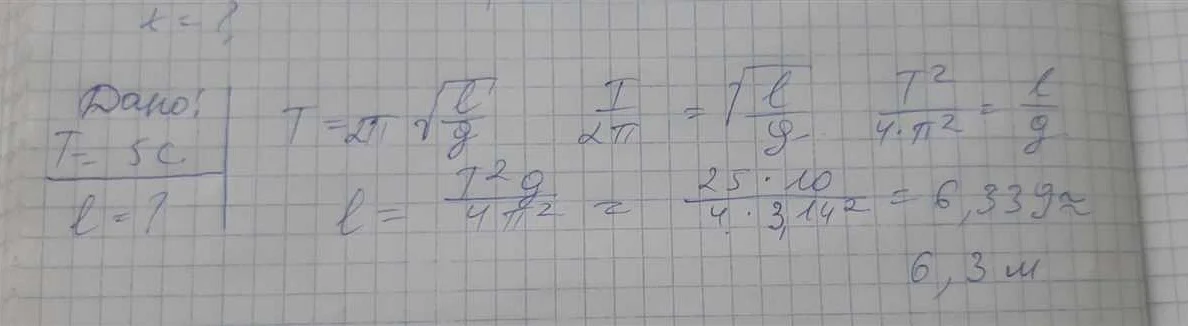 x = ?
Дано:
T = 5 с
l = ?
T = 2π √(l/g)   T/2π = √(l/g)   T²/4·π² = l/g
l = T²g/4π² = 25·10/4·3,14² = 6,339 ≈
6,3 м